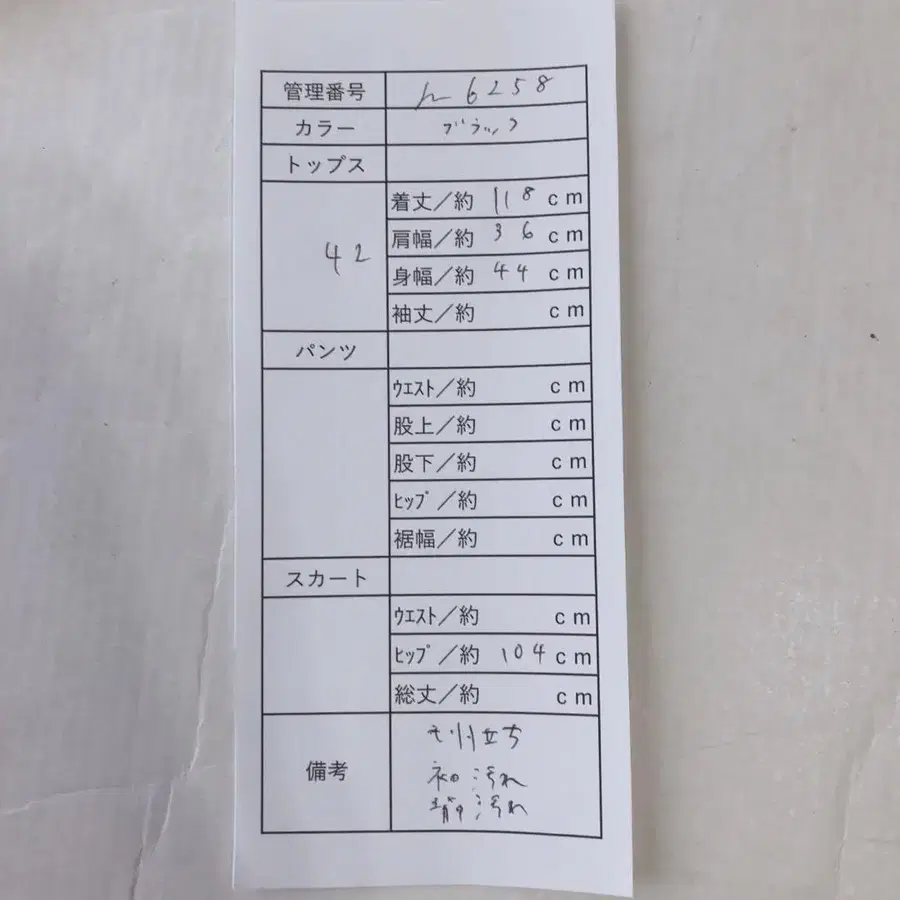 管理番号 h 6258
カラー ブラック
トップス
42
着丈／約 118 cm
肩幅／約 36 cm
身幅／約 44 cm
袖丈／約 cm
パンツ
ｳｴｽﾄ／約 cm
股上／約 cm
股下／約 cm
ﾋｯﾌﾟ／約 cm
裾幅／約 cm
スカート
ｳｴｽﾄ／約 cm
ﾋｯﾌﾟ／約 104 cm
総丈／約 cm
備考
毛羽立ち
袖 汚れ
背中 汚れ